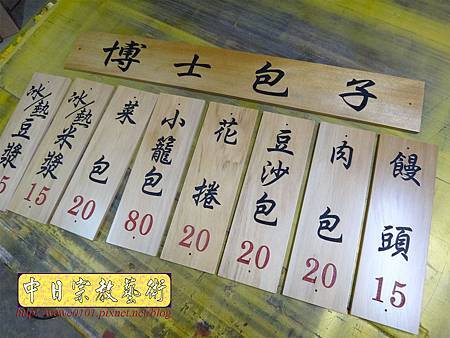 博士包子
饅頭 15
肉包 20
豆沙包 20
花捲 20
小籠包 80
菜包 20
冰/熱米漿 15
冰/熱豆漿 5
中日宗教藝術